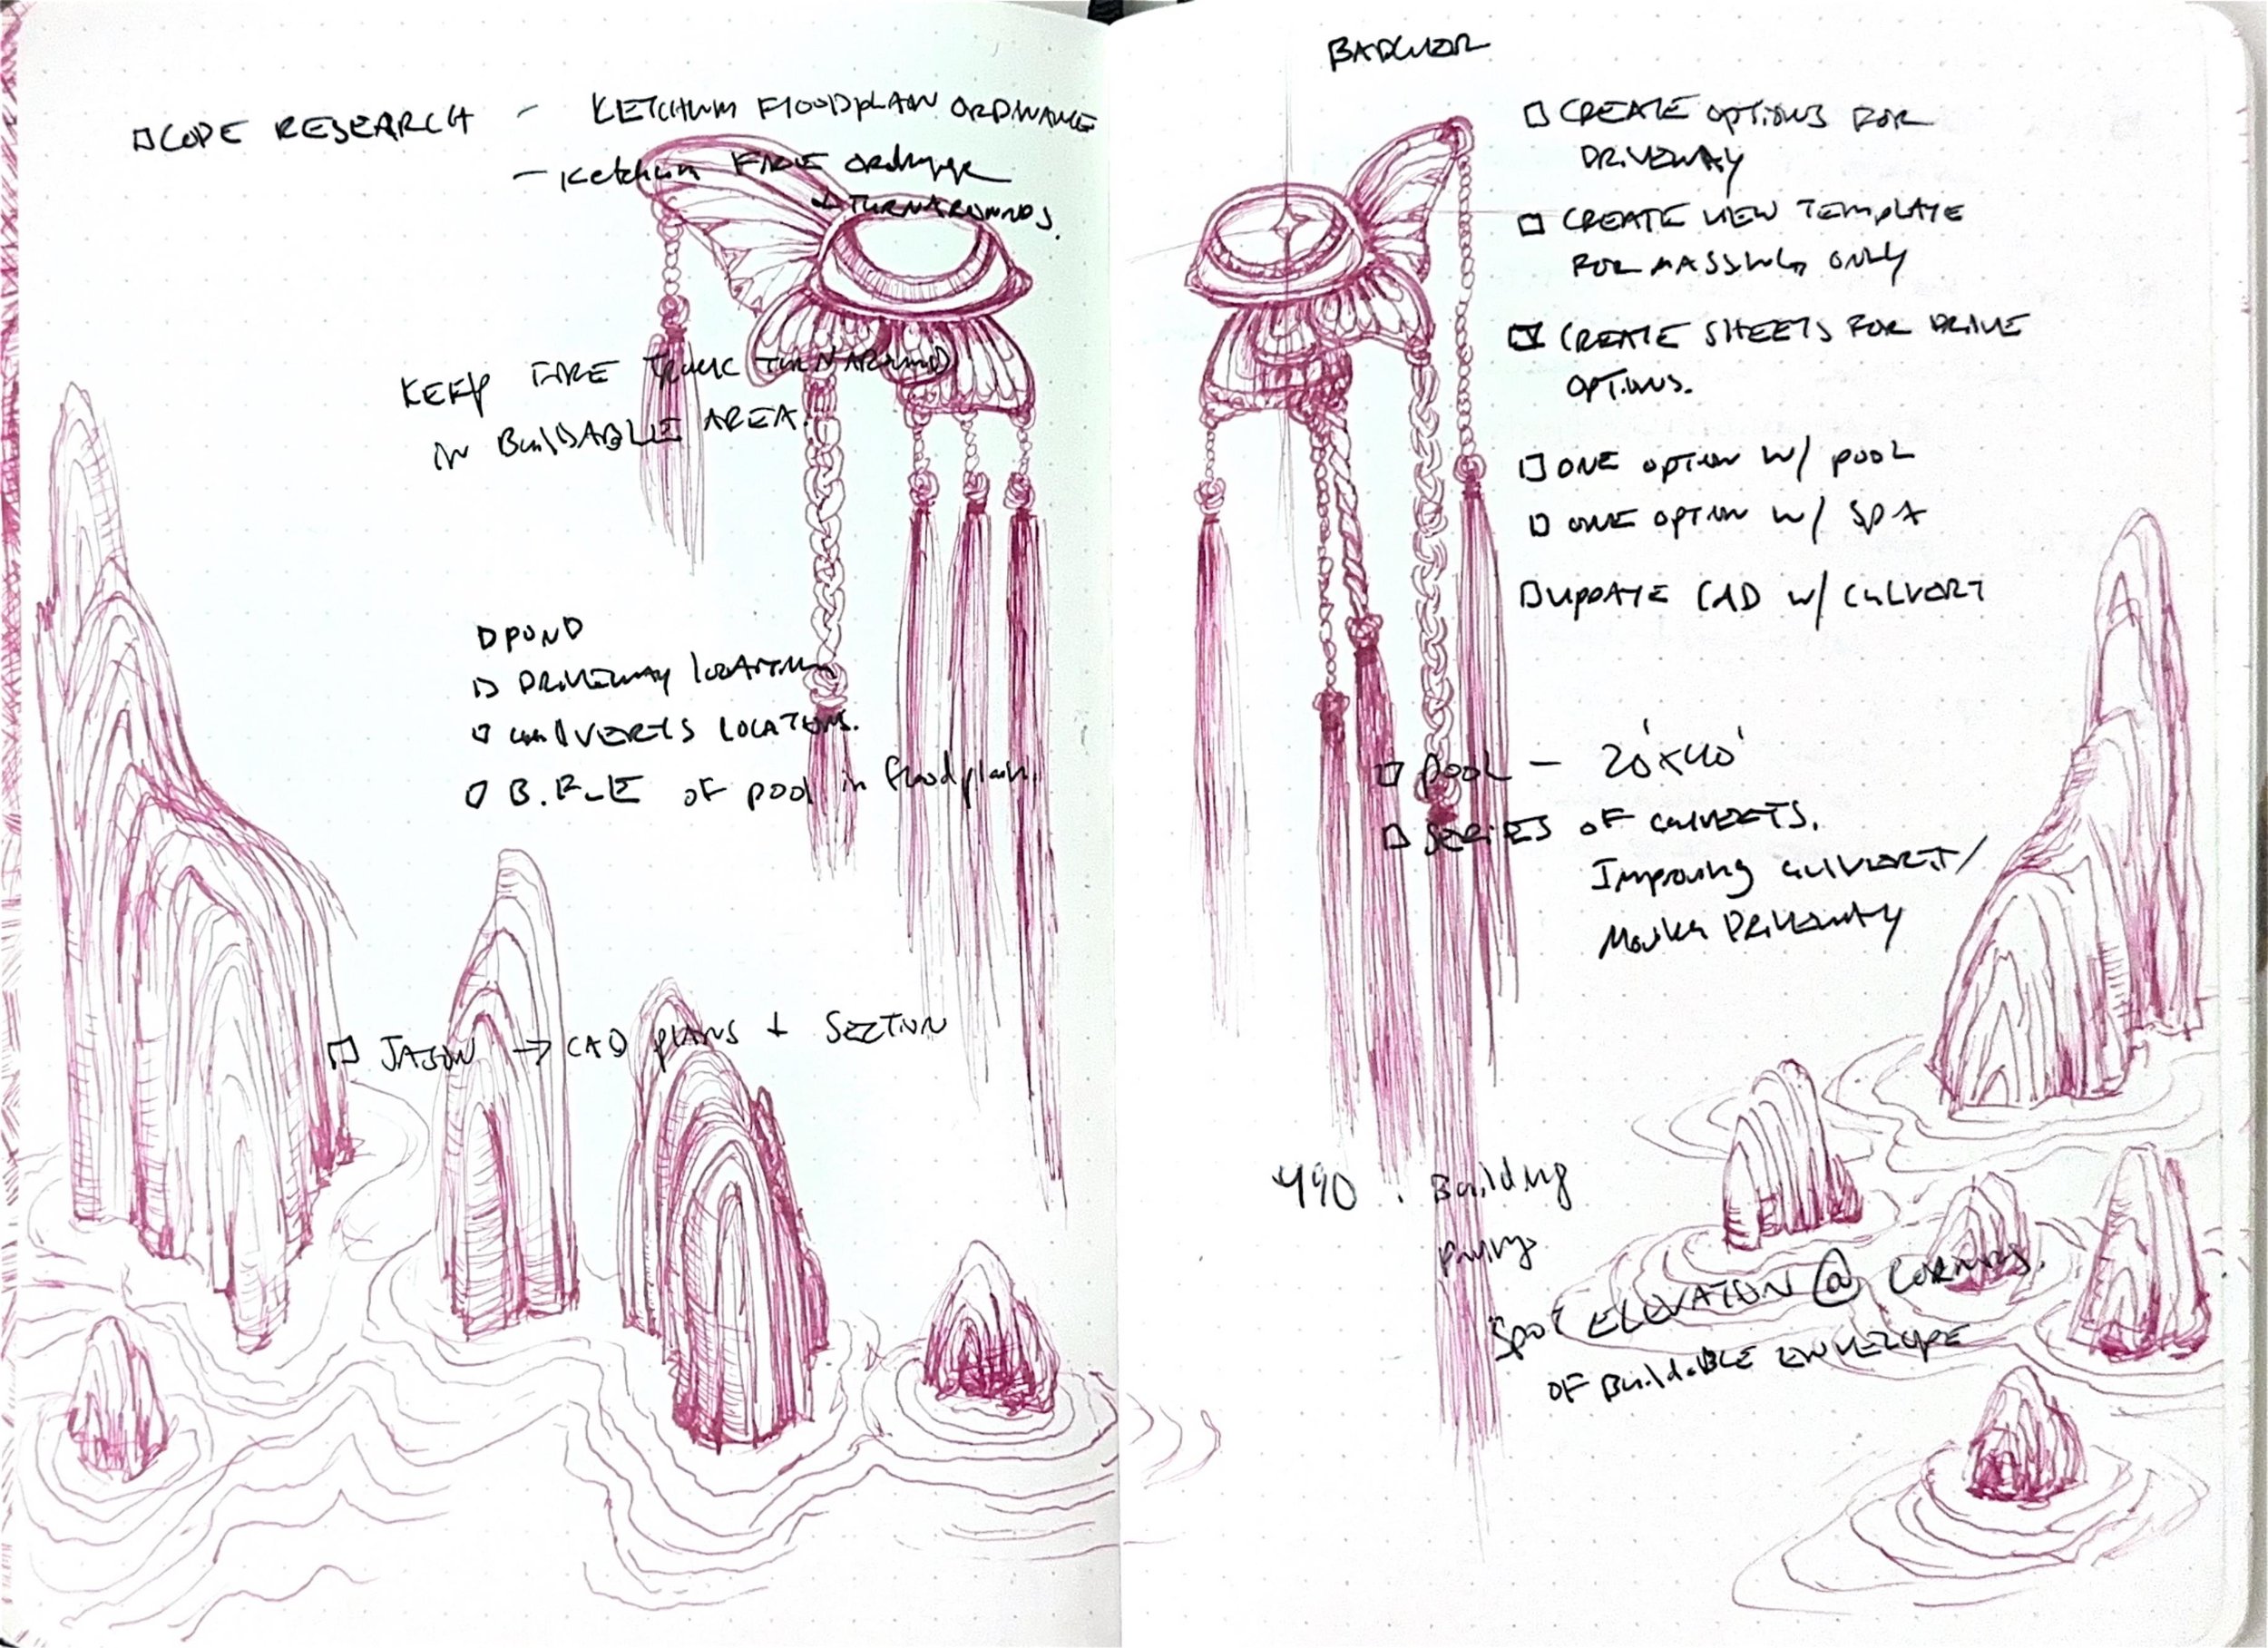 CODE RESEARCH - KETCHUM FLOODPLAIN ORDINANCE
- Ketchum FIRE
+ TURNAROUNDS.
KEEP FIRE TRUCK TURNAROUND
IN BUILDABLE AREA.
POND
DRIVEWAY LOCATION
CULVERTS LOCATIONS.
B.F.E OF POOL in floodplain.
JASON → CAD PLANS + SECTION
CREATE OPTIONS FOR
DRIVEWAY
CREATE VIEW TEMPLATE
FOR MASSING ONLY
CREATE SHEETS FOR DRIVE
OPTIONS.
ONE OPTION W/ POOL
ONE OPTION W/ SPA
UPDATE CAD W/ CULVERT
POOL - 20'x40'
SERIES OF CULVERTS.
Improving CULVERTS/
DRIVEWAY
490 . Building
SPOT ELEVATION @ CORNERS.
OF BUILDABLE ENVELOPE